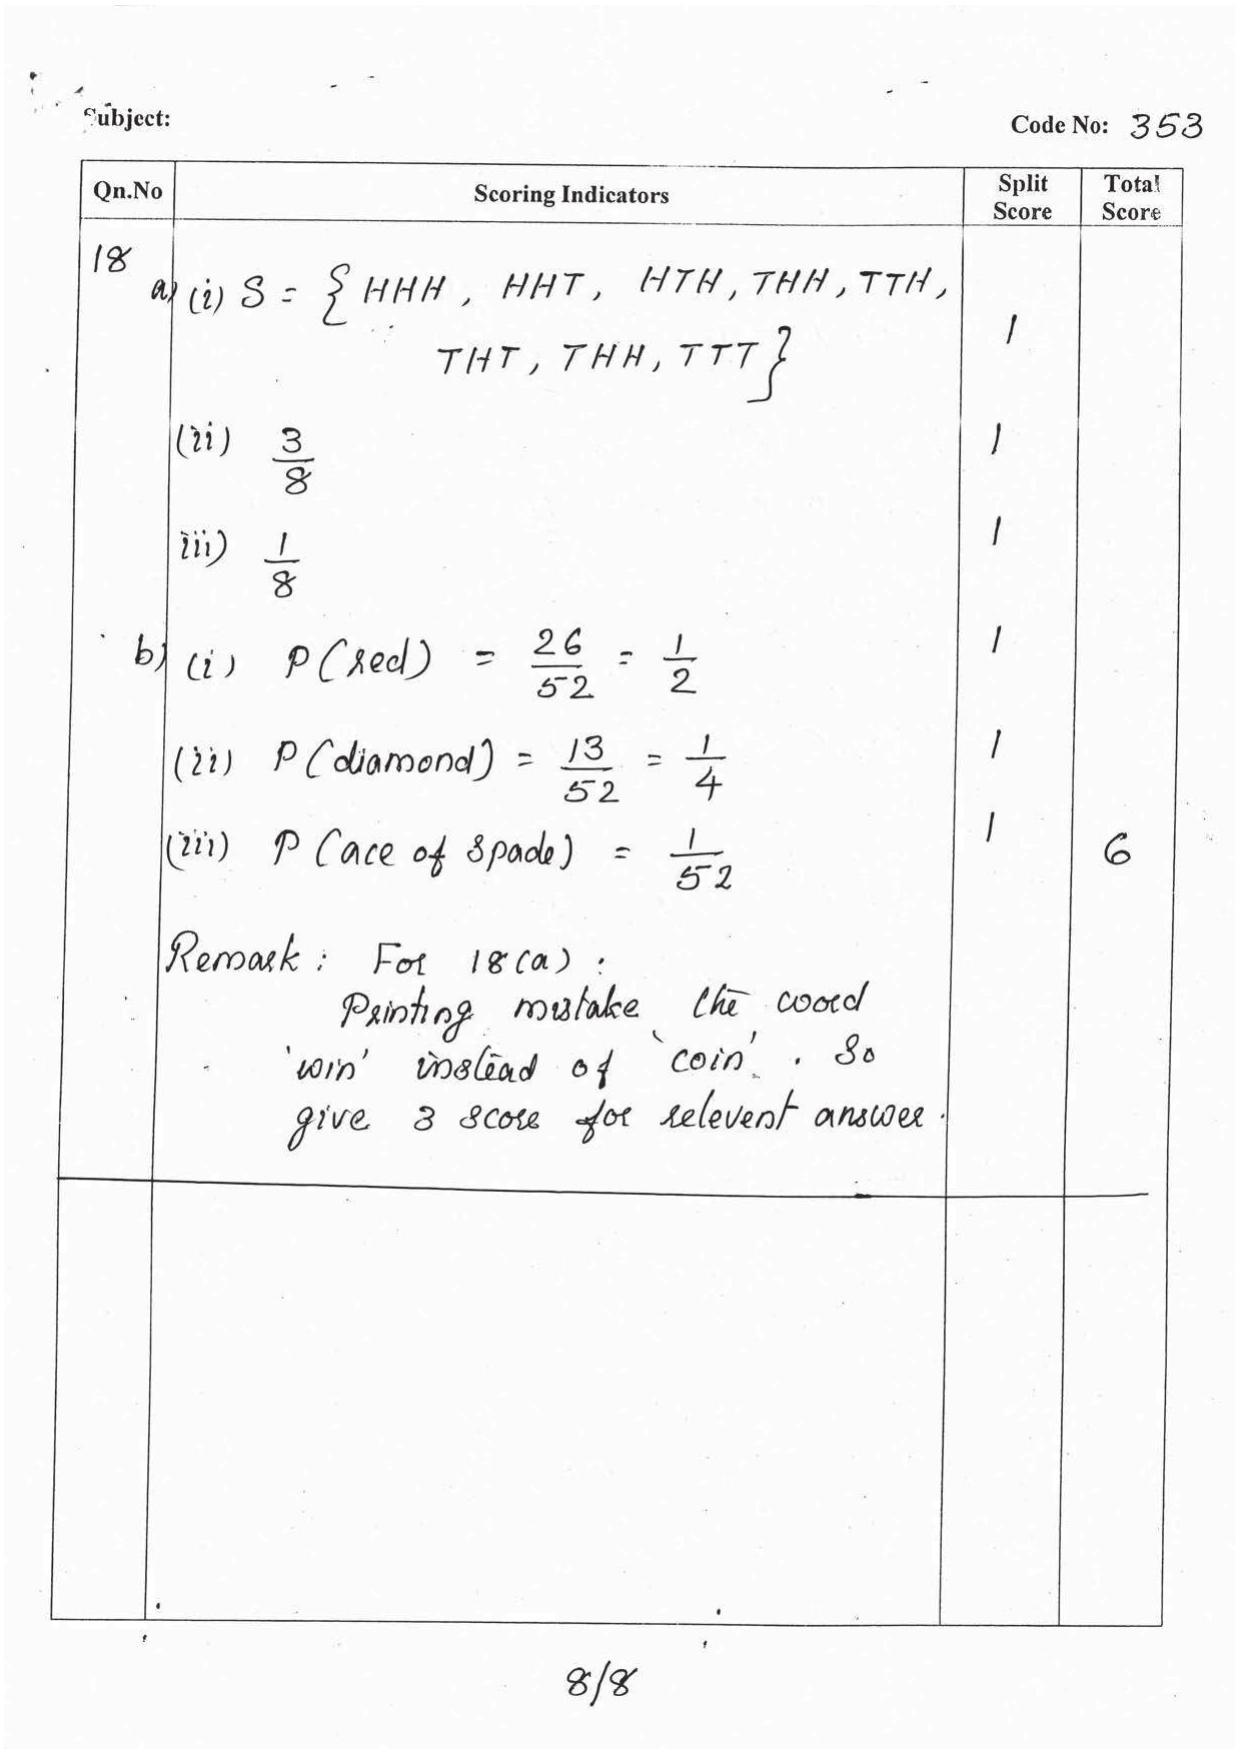 Subject:
Code No: 353
Qn.No Scoring Indicators Split Score Total Score
18 a) (i) S = { HHH, HHT, HTH, THH, TTH,
THT, THH, TTT } 1
(ii) 3/8 1
iii) 1/8 1
b) (i) P(red) = 26/52 = 1/2 1
(ii) P(diamond) = 13/52 = 1/4 1
(iii) P(ace of spade) = 1/52 1 6
Remark : For 18(a) :
Printing mistake the word
'win' instead of 'coin'. So
give 3 score for relevent answer.
8/8